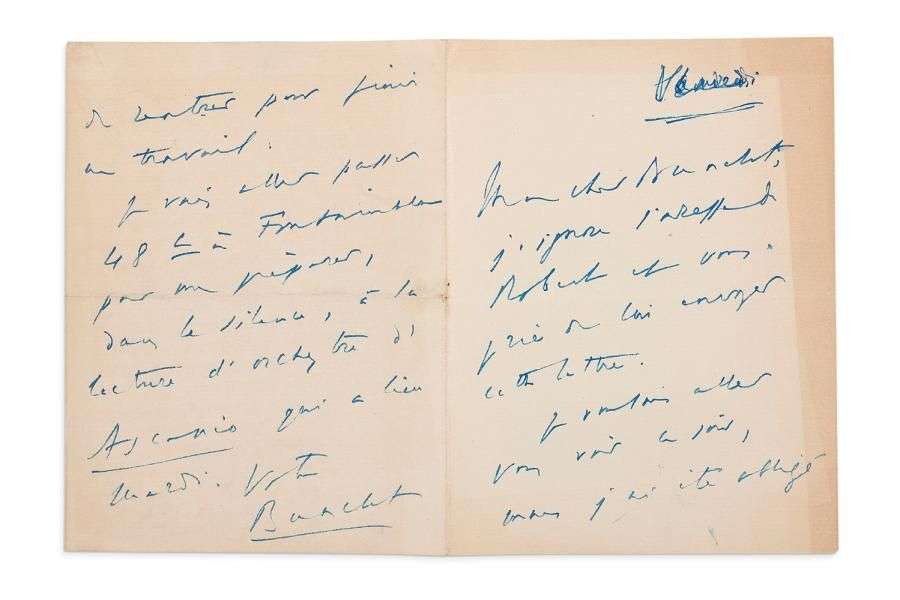 Mon cher Buncht,
j'ignore l'adresse de
Robert et vous
prie de lui envoyer
cette lettre.
Je voulais aller
vous voir ce soir,
mais j'ai été obligé
de rentrer pour finir
un travail.
Je vais aller passer
48 h à Fontainebleau
pour me préparer,
dans le silence, à la
lecture d'orchestre d'
Ascanio qui a lieu
Mardi. Votre
Buncht